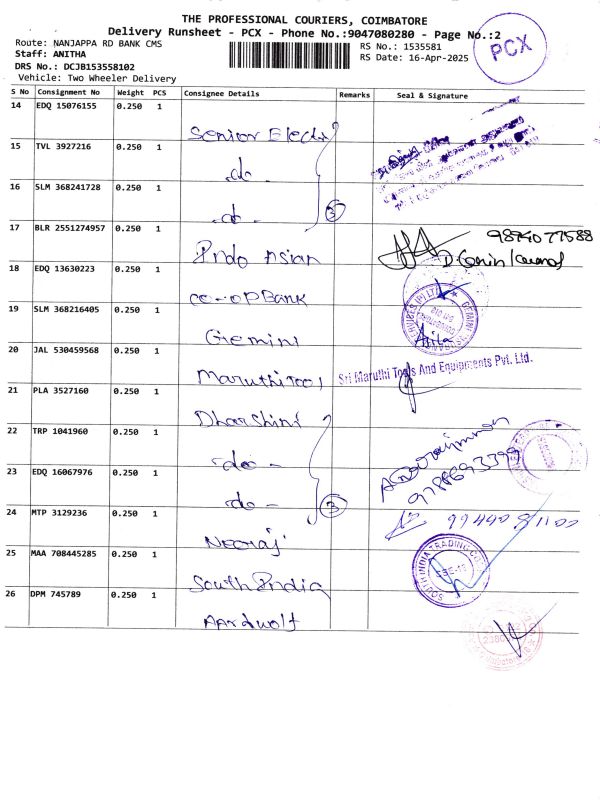 THE PROFESSIONAL COURIERS, COIMBATORE
Delivery Runsheet - PCX - Phone No.:9047080280 - Page No.:2
PCX
Route: NANJAPPA RD BANK CMS
RS No.: 1535581
Staff: ANITHA
RS Date: 16-Apr-2025
DRS No.: DCJB153558102
Vehicle: Two Wheeler Delivery
S No Consignment No Weight PCS Consignee Details Remarks Seal & Signature
14 EDQ 15076155 0.250 1
Senior Electri
15 TVL 3927216 0.250 1
-do-
16 SLM 368241728 0.250 1
-do- 3
17 BLR 2551274957 0.250 1
Indo Asian
9894077588
18 EDQ 13630223 0.250 1
CO-OP Bank
19 SLM 368216405 0.250 1
Gemini
20 JAL 530459568 0.250 1
Maruthi Tool
Sri Maruthi Tools And Equipments Pvt. Ltd.
21 PLA 3527160 0.250 1
Dharshini
22 TRP 1041960 0.250 1
-do-
23 EDQ 16067976 0.250 1
-do- 3
24 MTP 3129236 0.250 1
Neeraj
25 MAA 708445285 0.250 1
South India
SOUTH INDIA TRADING CO
26 DPM 745789 0.250 1
Aardwolf